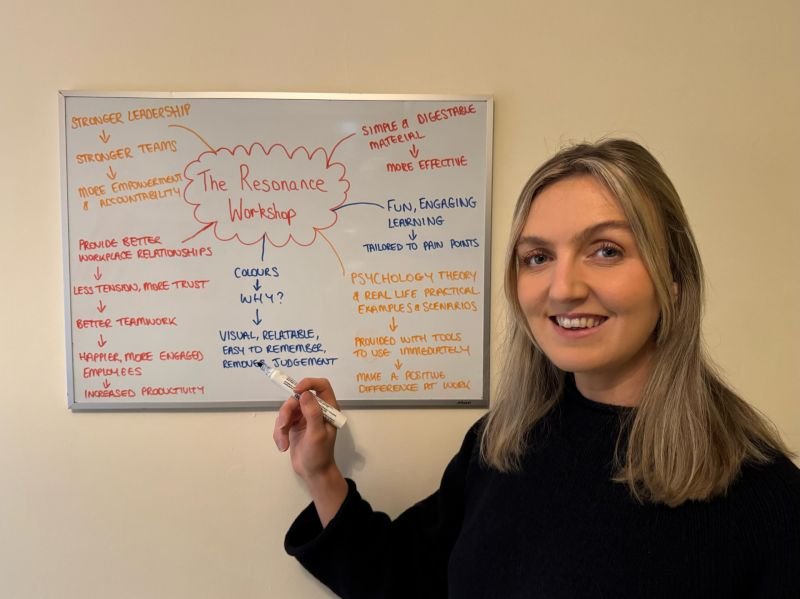 The Resonance
Workshop
STRONGER LEADERSHIP
↓
STRONGER TEAMS
↓
MORE EMPOWERMENT
& ACCOUNTABILITY
PROVIDE BETTER
WORKPLACE RELATIONSHIPS
↓
LESS TENSION, MORE TRUST
↓
BETTER TEAMWORK
↓
HAPPIER, MORE ENGAGED
EMPLOYEES
↓
INCREASED PRODUCTIVITY
COLOURS
↓
WHY?
↓
VISUAL, RELATABLE,
EASY TO REMEMBER,
REMOVES JUDGEMENT
SIMPLE & DIGESTABLE
MATERIAL
↓
MORE EFFECTIVE
FUN, ENGAGING
LEARNING
↓
TAILORED TO PAIN POINTS
PSYCHOLOGY THEORY
& REAL LIFE PRACTICAL
EXAMPLES & SCENARIOS
↓
PROVIDED WITH TOOLS
TO USE IMMEDIATELY
↓
MAKE A POSITIVE
DIFFERENCE AT WORK